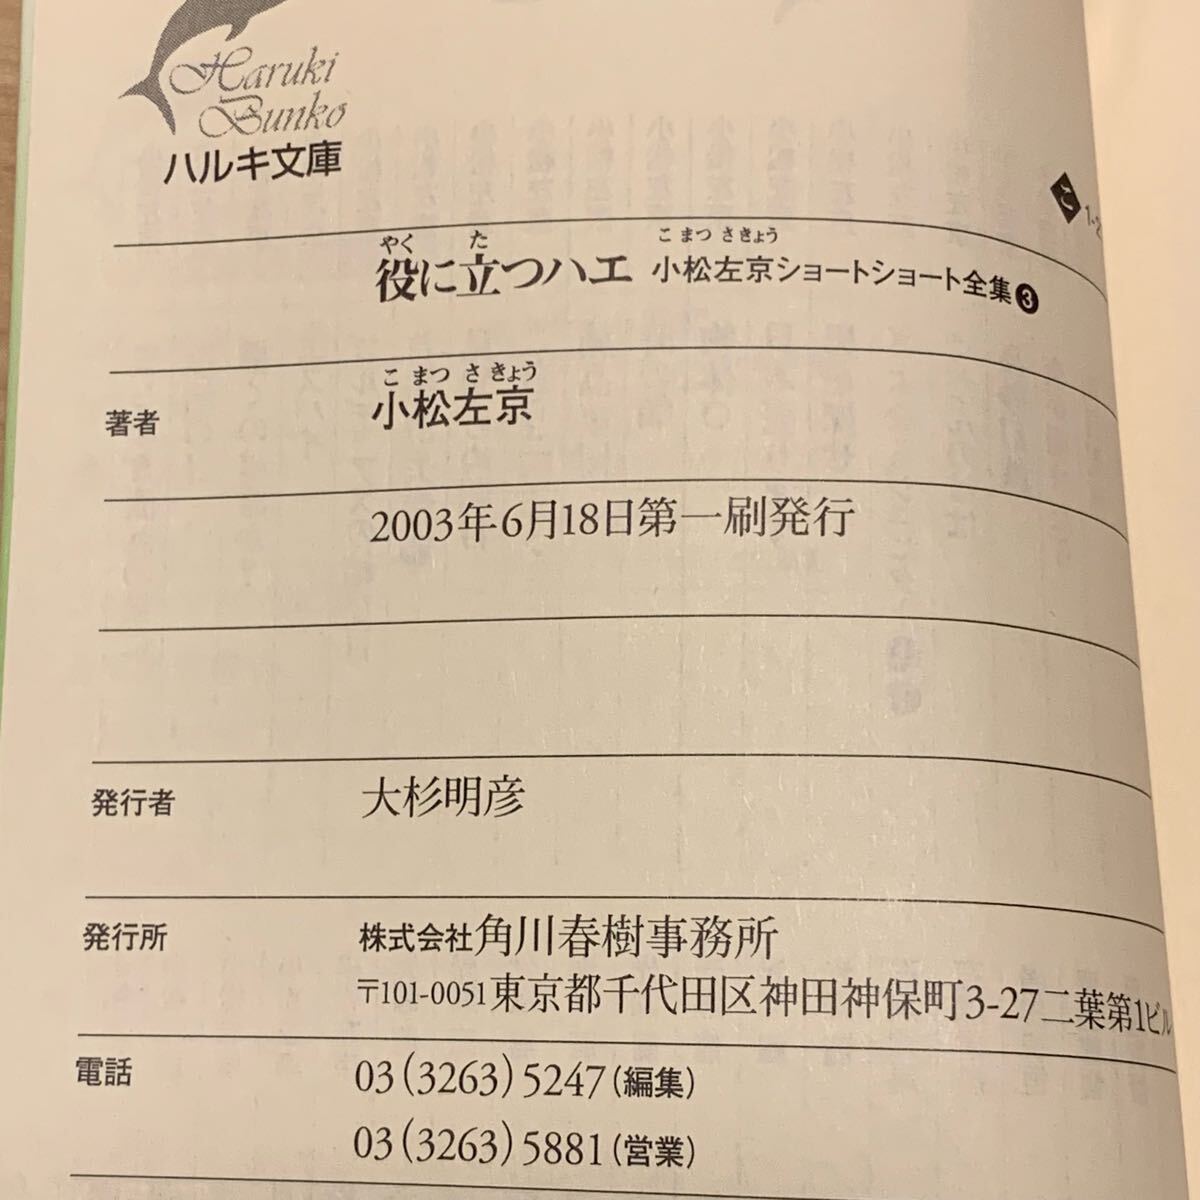 Haruki
Bunko
ハルキ文庫
こ 1-2
やく た こ まつ さ きょう
役に立つハエ 小松左京ショートショート全集❸
こ まつ さ きょう
著者 小松左京
2003年6月18日第一刷発行
発行者 大杉明彦
発行所 株式会社角川春樹事務所
〒101-0051東京都千代田区神田神保町3-27二葉第1ビル
電話 03(3263)5247(編集)
03(3263)5881(営業)